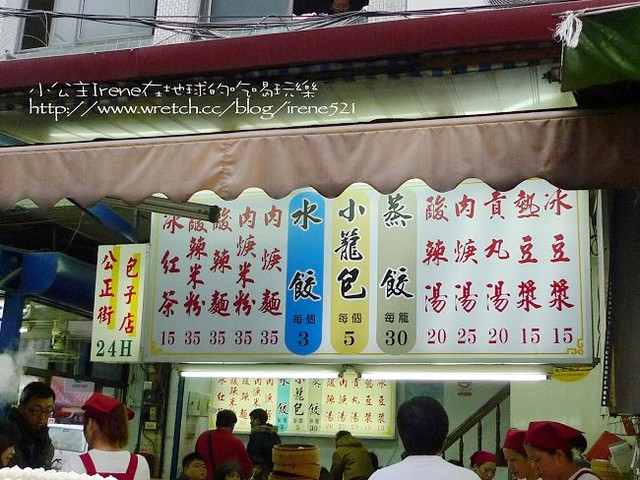 小公主Irene在地球的吃喝玩樂
http://www.wretch.cc/blog/irene521
公正街
包子店
24H
冰紅茶 15
酸辣米粉 35
酸辣麵 35
肉焿米粉 35
肉焿麵 35
水餃 每個 3
小籠包 每個 5
蒸餃 每籠 30
酸辣湯 20
肉焿湯 25
貢丸湯 20
熱豆漿 15
冰豆漿 15